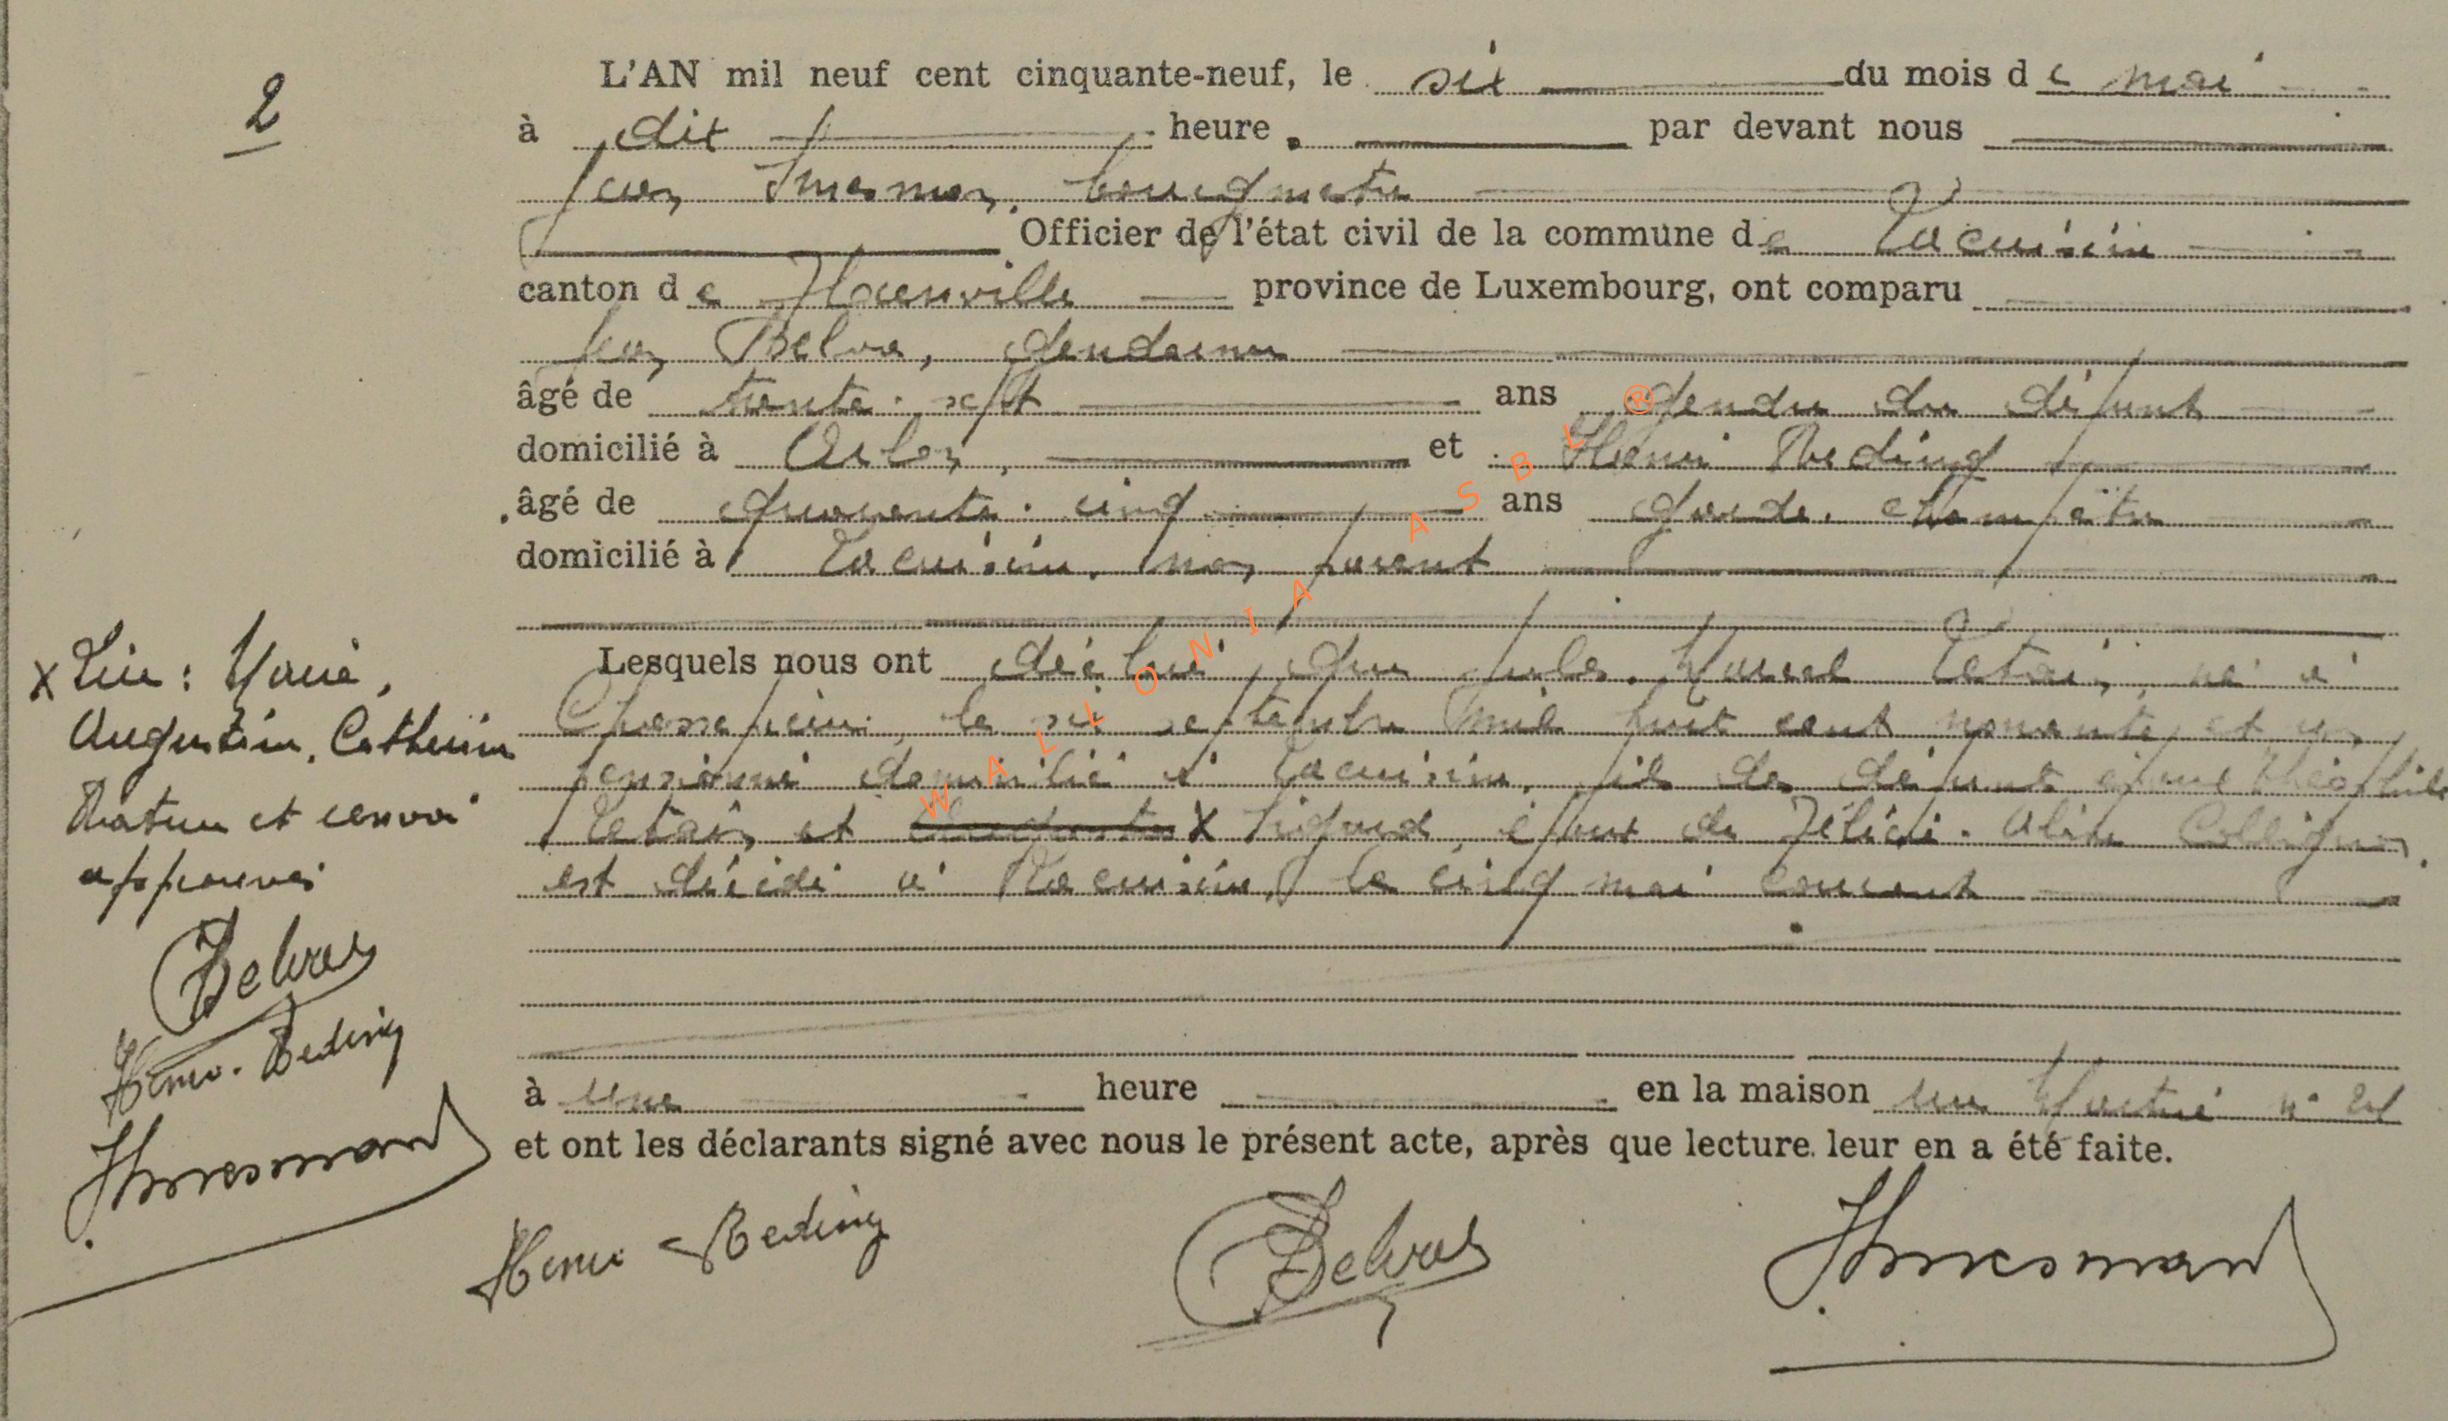 2
L'AN mil neuf cent cinquante-neuf, le six du mois de mai
à dix heures par devant nous
Jean bourgmestre
Officier de l'état civil de la commune de Lacuisine
canton de Florenville province de Luxembourg, ont comparu
Jean gendarme
âgé de trente-sept ans gendre du défunt
domicilié à Arlon, et Henri Reding
âgé de quarante-cinq ans garde-champêtre
domicilié à Lacuisine, non parent
Lesquels nous ont déclaré que Jules-Marcel né à
Chassepierre, le six septembre mil huit cent nonante et un
pensionné domicilié à Lacuisine, fils de défunts époux Théophile
et X Pignard, époux de Félicie-Aline Collignon
est décédé à Lacuisine, le cinq mai courant
à une heure en la maison n° 24
et ont les déclarants signé avec nous le présent acte, après que lecture leur en a été faite.
X Lire : Marie,
Augustine, Catherine
Rature et renvoi
approuvés
Henri Reding
Henri Reding
WALLONIA ASBL ®